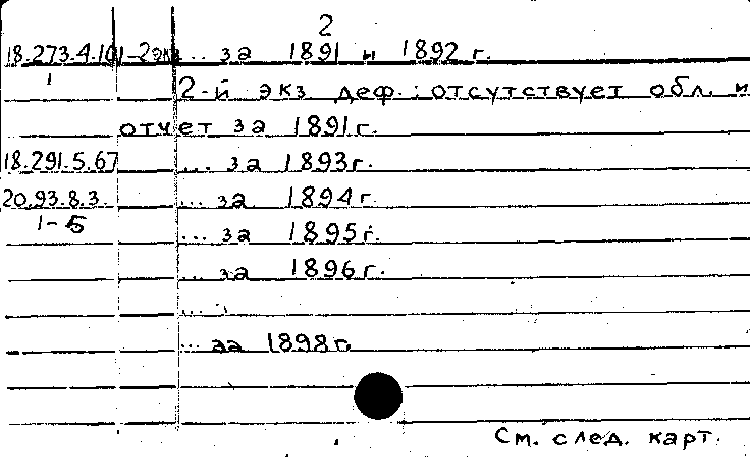 2
18.273.4.101-2экз ... за 1891 и 1892 г.
1
2-й экз деф.: отсутствует обл. и
отчет за 1891г.
18.291.5.67 ... за 1893г.
20.93.8.3. ... за 1894г.
1-5
... за 1895г.
... за 1896г.
...
... за 1898г.
См. след. карт.